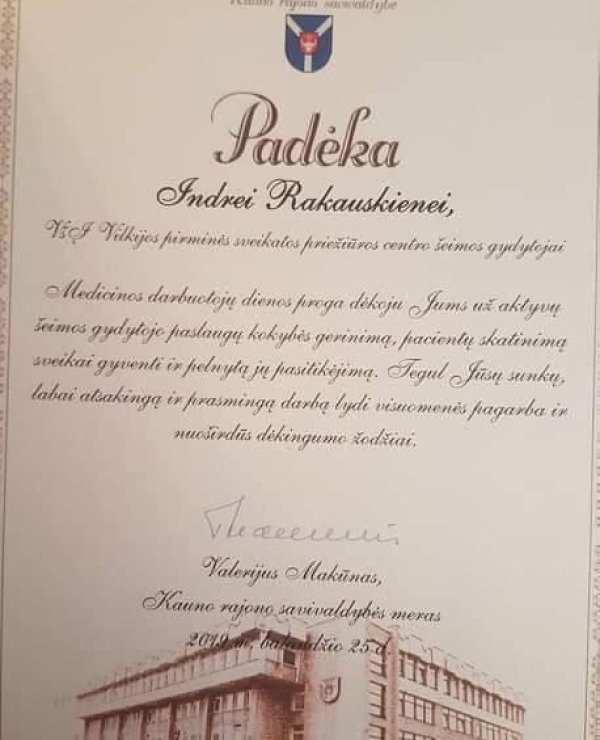 Kauno rajono savivaldybė
Padėka
Indrei Rakauskienei,
VšĮ Vilkijos pirminės sveikatos priežiūros centro šeimos gydytojai
Medicinos darbuotojų dienos proga dėkoju Jums už aktyvų
šeimos gydytojo paslaugų kokybės gerinimą, pacientų skatinimą
sveikai gyventi ir pelnytą jų pasitikėjimą. Tegul Jūsų sunkų,
labai atsakingą ir prasmingą darbą lydi visuomenės pagarba ir
nuoširdūs dėkingumo žodžiai.
Valerijus Makūnas,
Kauno rajono savivaldybės meras
2019 m. balandžio 25 d.